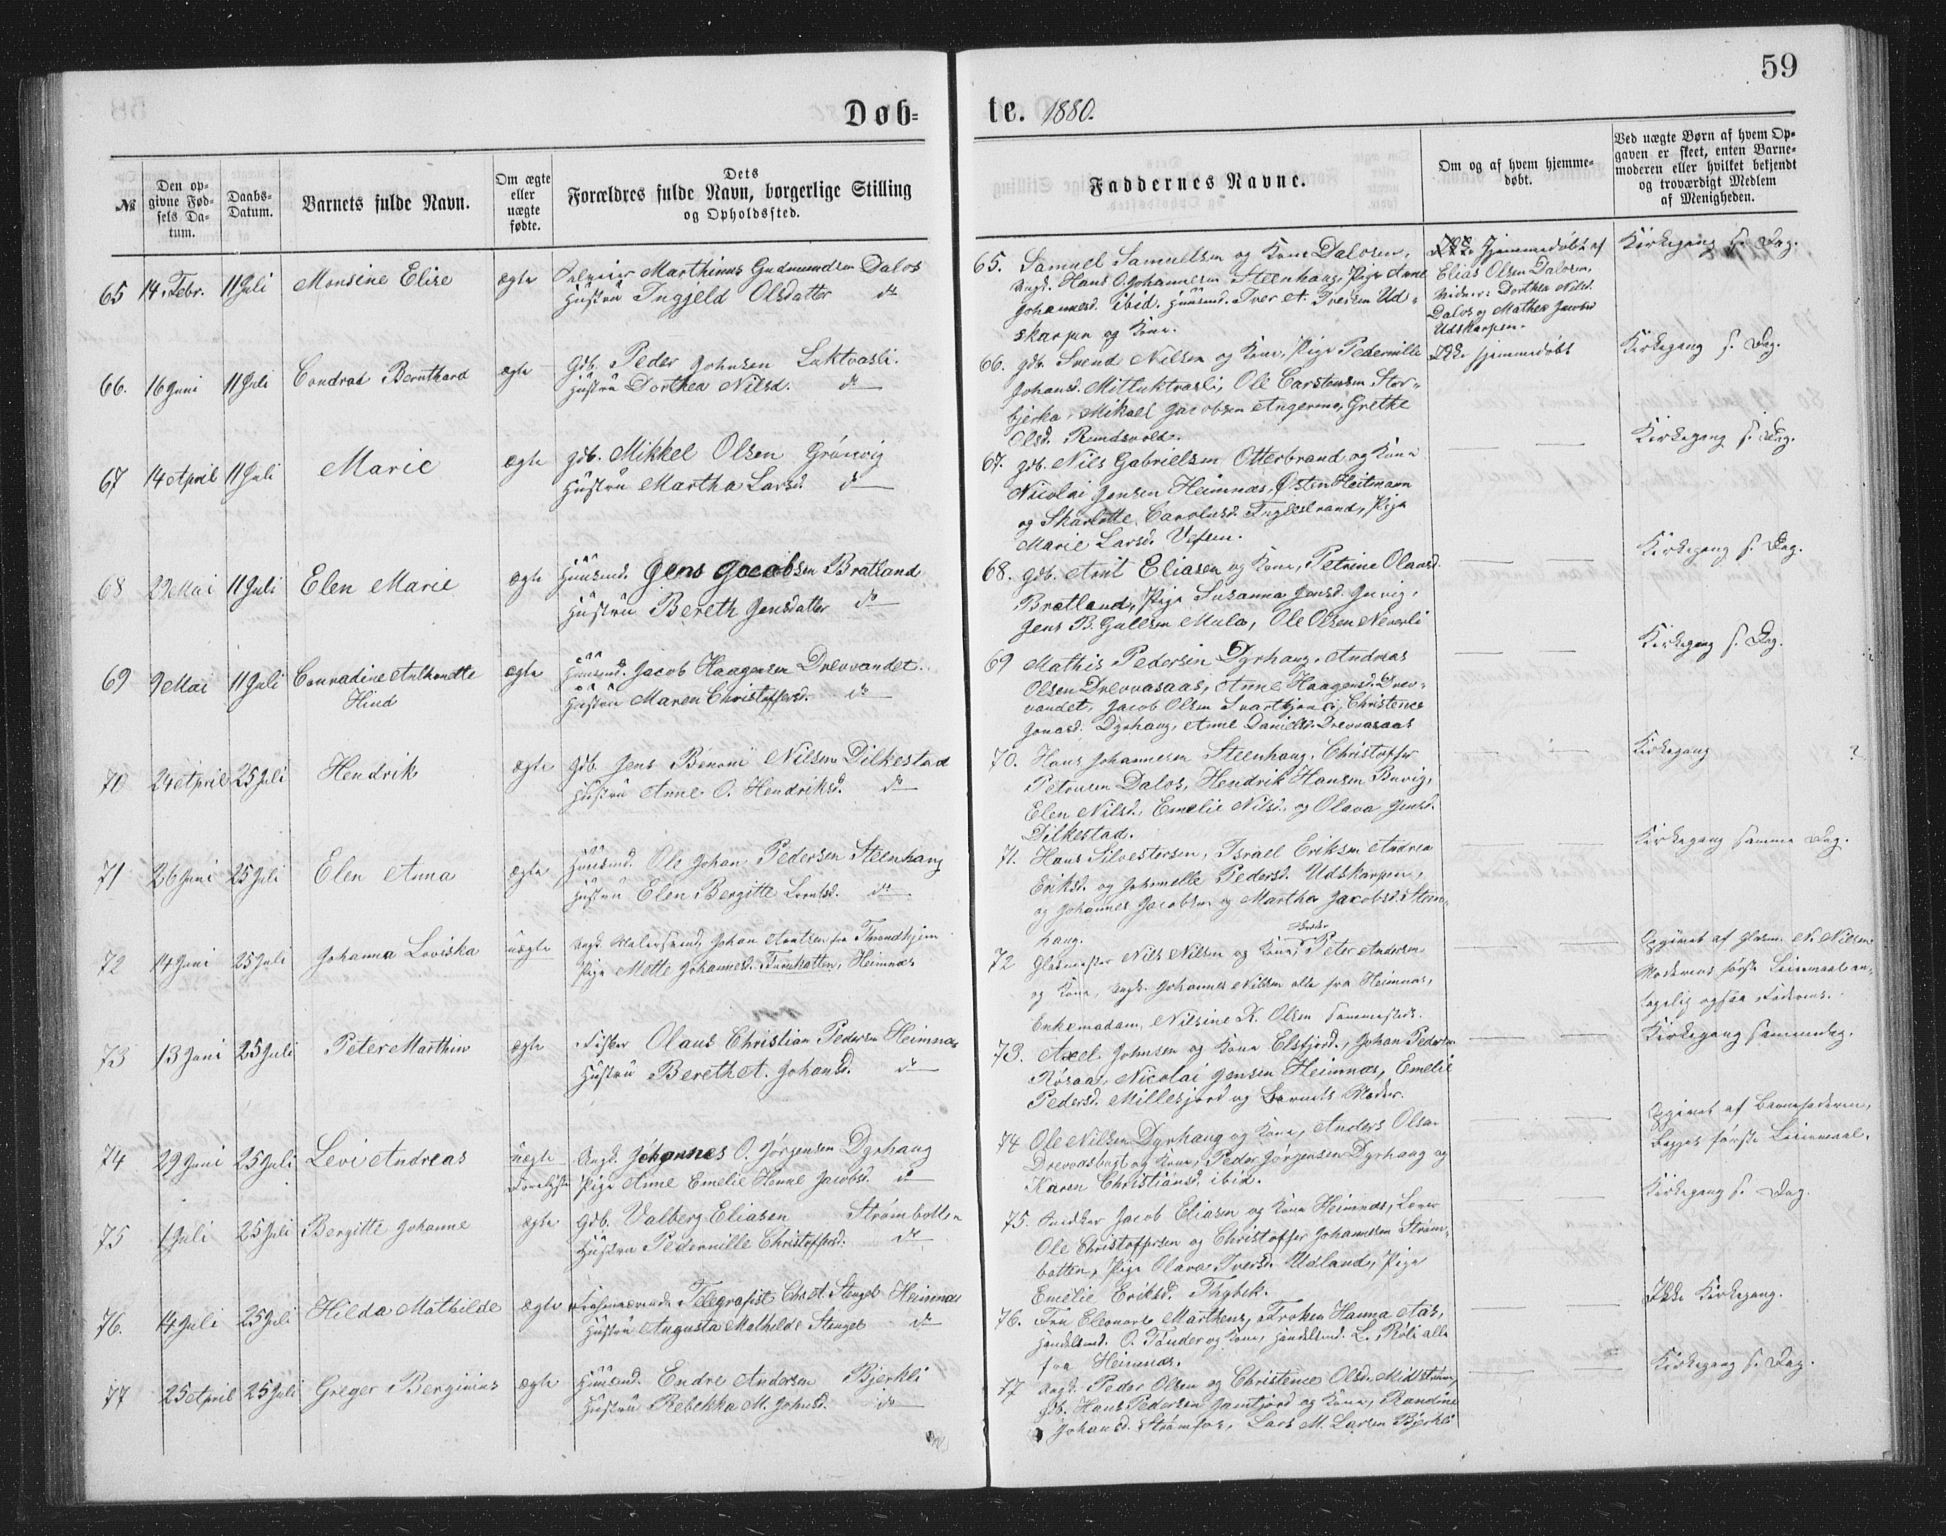 59
Døb=
te. 1880.
№
Den op-
givne Fød-
sels Da-
tum.
Daabs-
Datum.
Barnets fulde Navn.
Om ægte
eller
uægte
fødte.
Dets
Forældres fulde Navn, borgerlige Stilling
og Opholdssted.
Faddernes Navne.
Om og af hvem hjemme-
døbt.
Ved uægte Børn af hvem Op-
gaven er skeet, enten Barne-
moderen eller hvilket bekjendt
og troværdigt Medlem
af Menigheden.
65 14 Febr. 11 Juli Monsine Elise ægte Marthinus Gudmundsen Dalos
Hustru Ingjeld Olsdatter do
66. 16 Juni 11 Juli Condrad Bernthard ægte Gdb. Peder Johnsen Luktvasli.
Hustru Dorthea Nilsd. do
67 14 April 11 Juli Marie ægte Gdb. Mikkel Olsen Grönvig
Hustru Martha Larsd. do
68 29 Mai 11 Juli Elen Marie ægte Huusmd. Jens Jacobsen Bratland
Hustru Bereth Jensdatter do
69 9 Mai 11 Juli Conradine Anthondte
Hind
ægte Huusmd. Jacob Haagensen Drevvandet.
Hustru Maren Christoffersd. do
70 24 April 25 Juli Hendrik ægte Gdb. Jens Benoni Nilsen Dilkestad
Hustru Anne O. Hendriksd. do
71 26 Juni 25 Juli Elen Anna ægte Huusmd. Ole Johan Pedersen Steenhaug
Hustru Elen Bergitte Lorntsd. do
72 14 Juni 25 Juli Johanna Loviska uægte Ungk. Malersvend Johan Arntsen fra Throndhjem
Pige Mette Johannesd. Heimnæs
73 13 Juni 25 Juli Peter Marthin ægte Fisker Olaus Christian Pedersen Heimnæs
Hustru Bereth A. Johansd. do
74 29 Juni 25 Juli Levi Andreas uægte Ungk. Johannes O. Jörgensen Dyrhaug
Pige Anne Emelie Hanne Jacobsd. do
75 1 Juli 25 Juli Bergitte Johanne ægte Gdb. Valberg Eliasen Strømbotten
Hustru Pedernille Christoffersd. do
76. 14 Juli 25 Juli Hilda Mathilde ægte Telegrafist Chr. A. Stengel Heimnæs
Hustru Augusta Mathilde Stengel do
77 25 April 25 Juli Greger Berginius ægte Huusmd. Endre Andersen Bjerkli
Hustru Rebekka M. Johnsd. do
65. Samuel Samuelsen og Kone Dalosen,
Ungk. Hans O. Johannesen Steenhaug, Pige Anne
Johannesd. ibid. Huusmd. Iver A. Iversen Ud-
skarpen og Kone.
Ikke Hjemmedøbt af
Elias Olsen Dalosen,
Vidner: Dorthea Nilsd.
Dalos og Mathea Jacobsd
Udskarpen.
Kirkegang s. Dag.
66. Gdb. Svend Nilsen og Kone, Pige Pedernille
Johansd. Mitluktvasli, Ole Carstensen Stor-
bjerka, Mikael Jacobsen Angermo, Grethe
Olsd. Rundsvold.
Ikke hjemmedøbt
Kirkegang s. Dag.
67. Gdb. Nils Gabrielsen Otterbrand og Kone
Nicolai Jensen Heimnæs, Østen Heitmann
og Skarlotte Carolusd. Inglestrand, Pige
Marie Larsd. Vefsen.
Kirkegang s. Dag.
68. Gdb. Arnt Eliasen og Kone, Petrine Olausd.
Bratland, Pige Susanna Jensd. Juvig,
Jens B. Gullsen Mula, Ole Olsen Neverli
Kirkegang s. Dag.
69 Mathis Pedersen Dyrhaug, Andreas
Olsen Drevvasaas, Anne Haagensd. Drev-
vandet, Jacob Olsen Svarttjønli, Christence
Jonasd. Dyrhaug, Anne Danielsd. Drevvasaas
Kirkegang s. Dag.
70. Hans Johannesen Steenhaug, Christoffer
Petersen Dalos, Hendrik Hansen Buvig,
Elen Nilsd. Emelie Nilsd. og Olava Jensd.
Dilkestad.
Kirkegang ?
71. Hans Silvestersen, Israel Eriksen Andrea
Eriksd. og Johnelle Pedersd. Udskarpen,
og Johannes Jacobsen og Martha Jacobsd. Steen-
haug.
Kirkegang samme Dag.
72 Glasmester Nils Nilsen og Kone, Peter Andersen
og Kone, Ungk. Johannes Nilsen alle fra Heimnæs,
Enkemadam Nilsine K. Olsen sammesteds.
Opgivet af Glasm. N. Nilsen
Moderens første Leiermaal an-
tagelig ogsaa Faderens.
73. Axel Johnsen og Kone Elsfjord, Johan Pedersen
Røsaa, Nicolai Jensen Heimnæs, Emelie
Pedersd. Millesjord og Barnets Moder.
Kirkegang samme Dag.
74 Ole Nilsen Dyrhaug og Kone, Anders Olsen
Drevvasbugt og Kone, Peder Jörgensen Dyrhaug og
Karen Christiansd. ibid.
Opgivet af Barnefaderen,
Begges første Leiermaal.
75. Snedker Jacob Eliasen og Kone Heimnæs, Lærer
Ole Christoffersen og Christoffer Johannesen Strøm-
botten, Pige Olava Iversd. Udland, Pige
Emelie Eriksd. Thybek.
Kirkegang s. Dag.
76. Fru Eleonore Marthens, Frøken Hanna Aas,
Handelsmd. O. Tønder og Kone, Handelsmd. L. Röli alle
fra Heimnæs.
Ikke Kirkegang.
77 Ungk. Peder Olsen og Christence Olsd. Midstrøm,
Gdb. Hans Pedersen Jamtjord og Kone, Randine
Johansd. Strømfos, Lars M. Larsen Bjerkli
Kirkegang s. Dag.